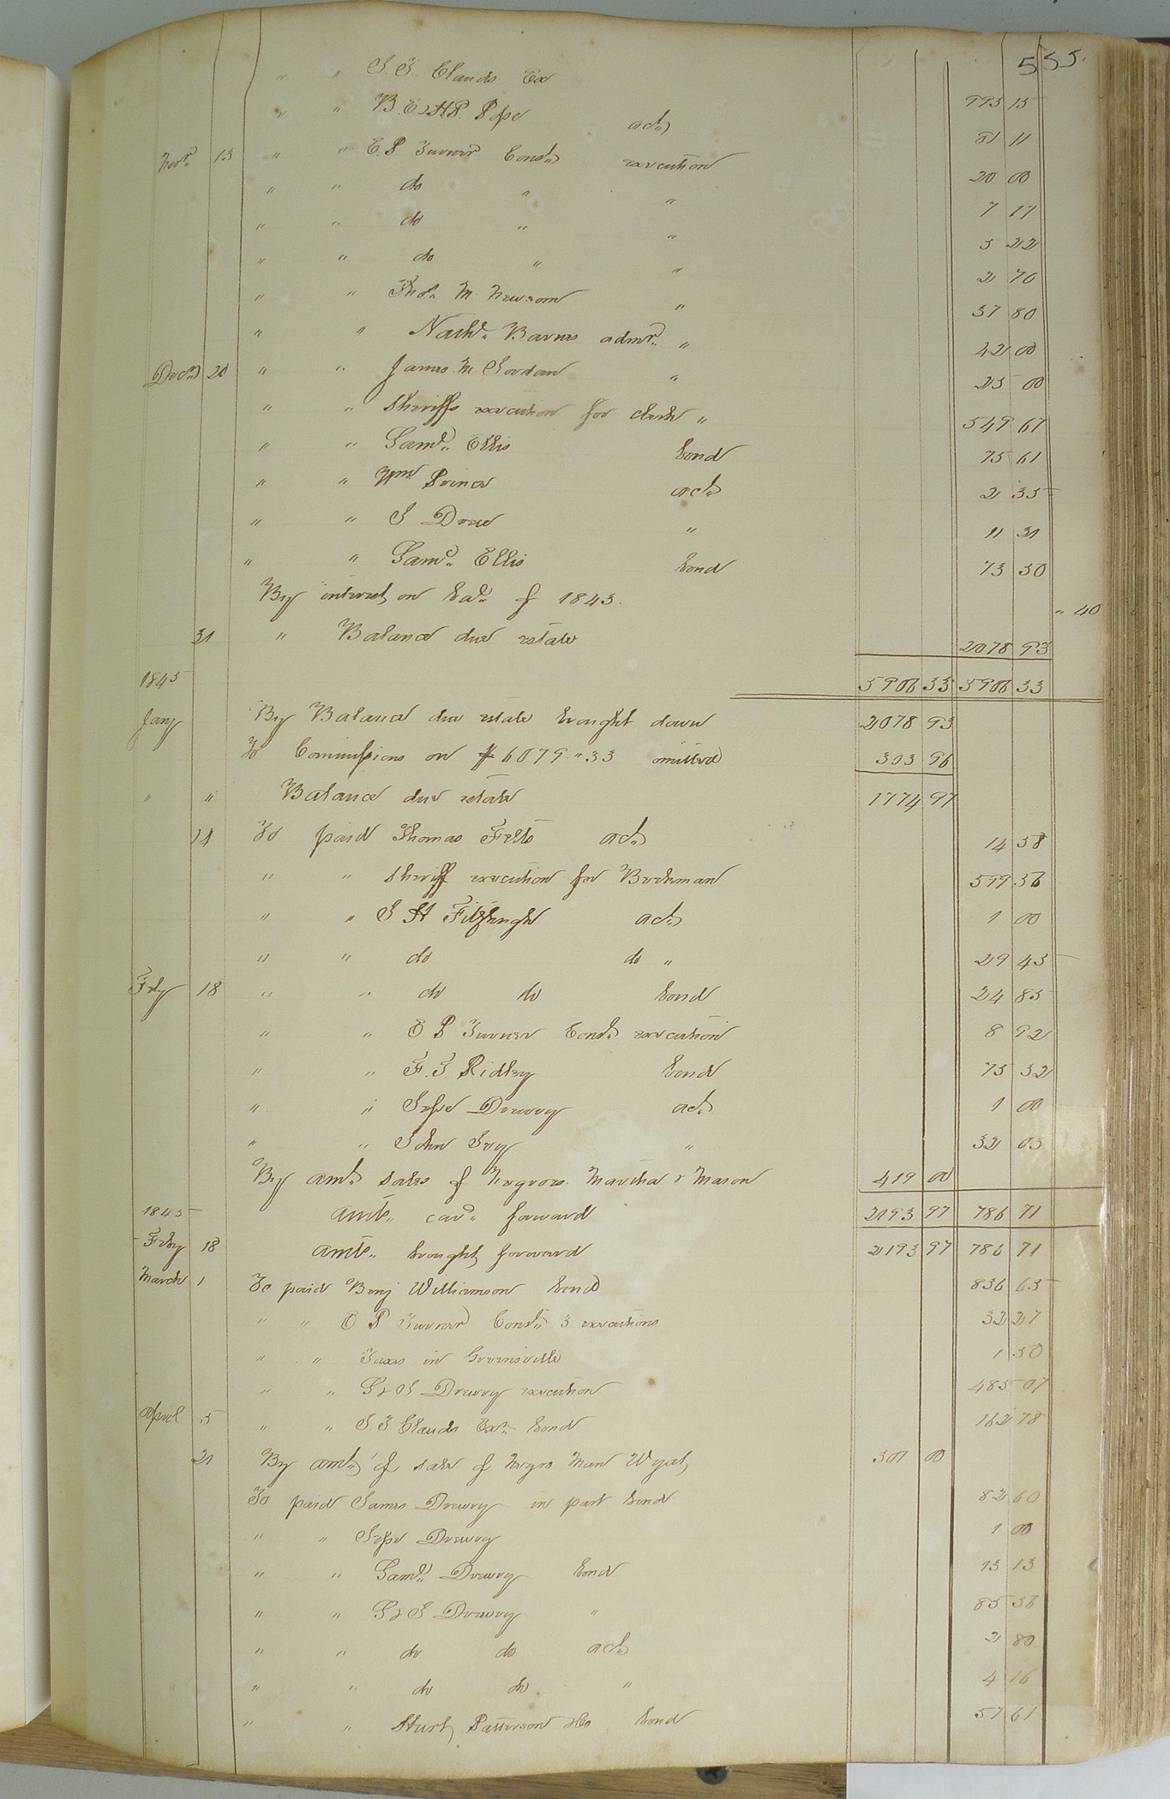 555.
" " J T Clauds Ex 993 15
" " B E & H P Pope act. 81 11
Novr. 13 " " E P Turner Const. execution 20 00
" " do " " 7 17
" " do " " 5 22
" " do " " 2 70
" " Thos. M Newsom " 37 80
" " Nathl. Barnes admr. " 42 00
Decr. 20 " " James M Jordan " 25 00
" " Sheriffs execution for clerk " 549 67
" " Saml. Ellis bond 75 61
" " Wm Prince act. 2 35
" " J Drew " 11 31
" " Saml. Ellis bond 73 50
By interest on bal. of 1843. " 40
31 " Balance due estate 2078 93
5906 33 5906 33
1845
Jany By Balance due estate brought down 2078 93
To Commissions on $6079 " 33 omitted 303 96
" " Balance due estate 1774 97
14 To paid Thomas Felts act. 14 58
" " Sheriff execution for Beckman 599 36
" " J H Fitzhugh act. 1 00
" " do do " 29 45
Feby 18 " " do do bond 24 85
" " E P Turner Const. execution 8 92
" " F. T Ridley bond 75 32
" " Jesse Drewry act. 1 00
" " John Ivy " 32 03
By amt. sales of Negroes Martha & Mason 419 00
1845 amts. card. forward 2193 97 786 71
Feby 18 amts. brought forward 2193 97 786 71
March 1 To paid Benj Williamson bond 836 65
" " E P Turner Const. 3 executions 32 27
" " Taxes in Greensville 1 50
" " S & J Drewry execution 485 07
April 5 " " J T Clauds Exr. bond 162 78
21 By amt. of sale of Negro Man Wyat 301 00
To paid James Drewry in part bond 82 60
" " Jesse Drewry 1 00
" " Saml. Drewry bond 13 13
" " S & J Drewry " 85 36
" " do do act. 2 80
" " do do " 4 16
" " Hurt, Patterson &Co bond 57 61